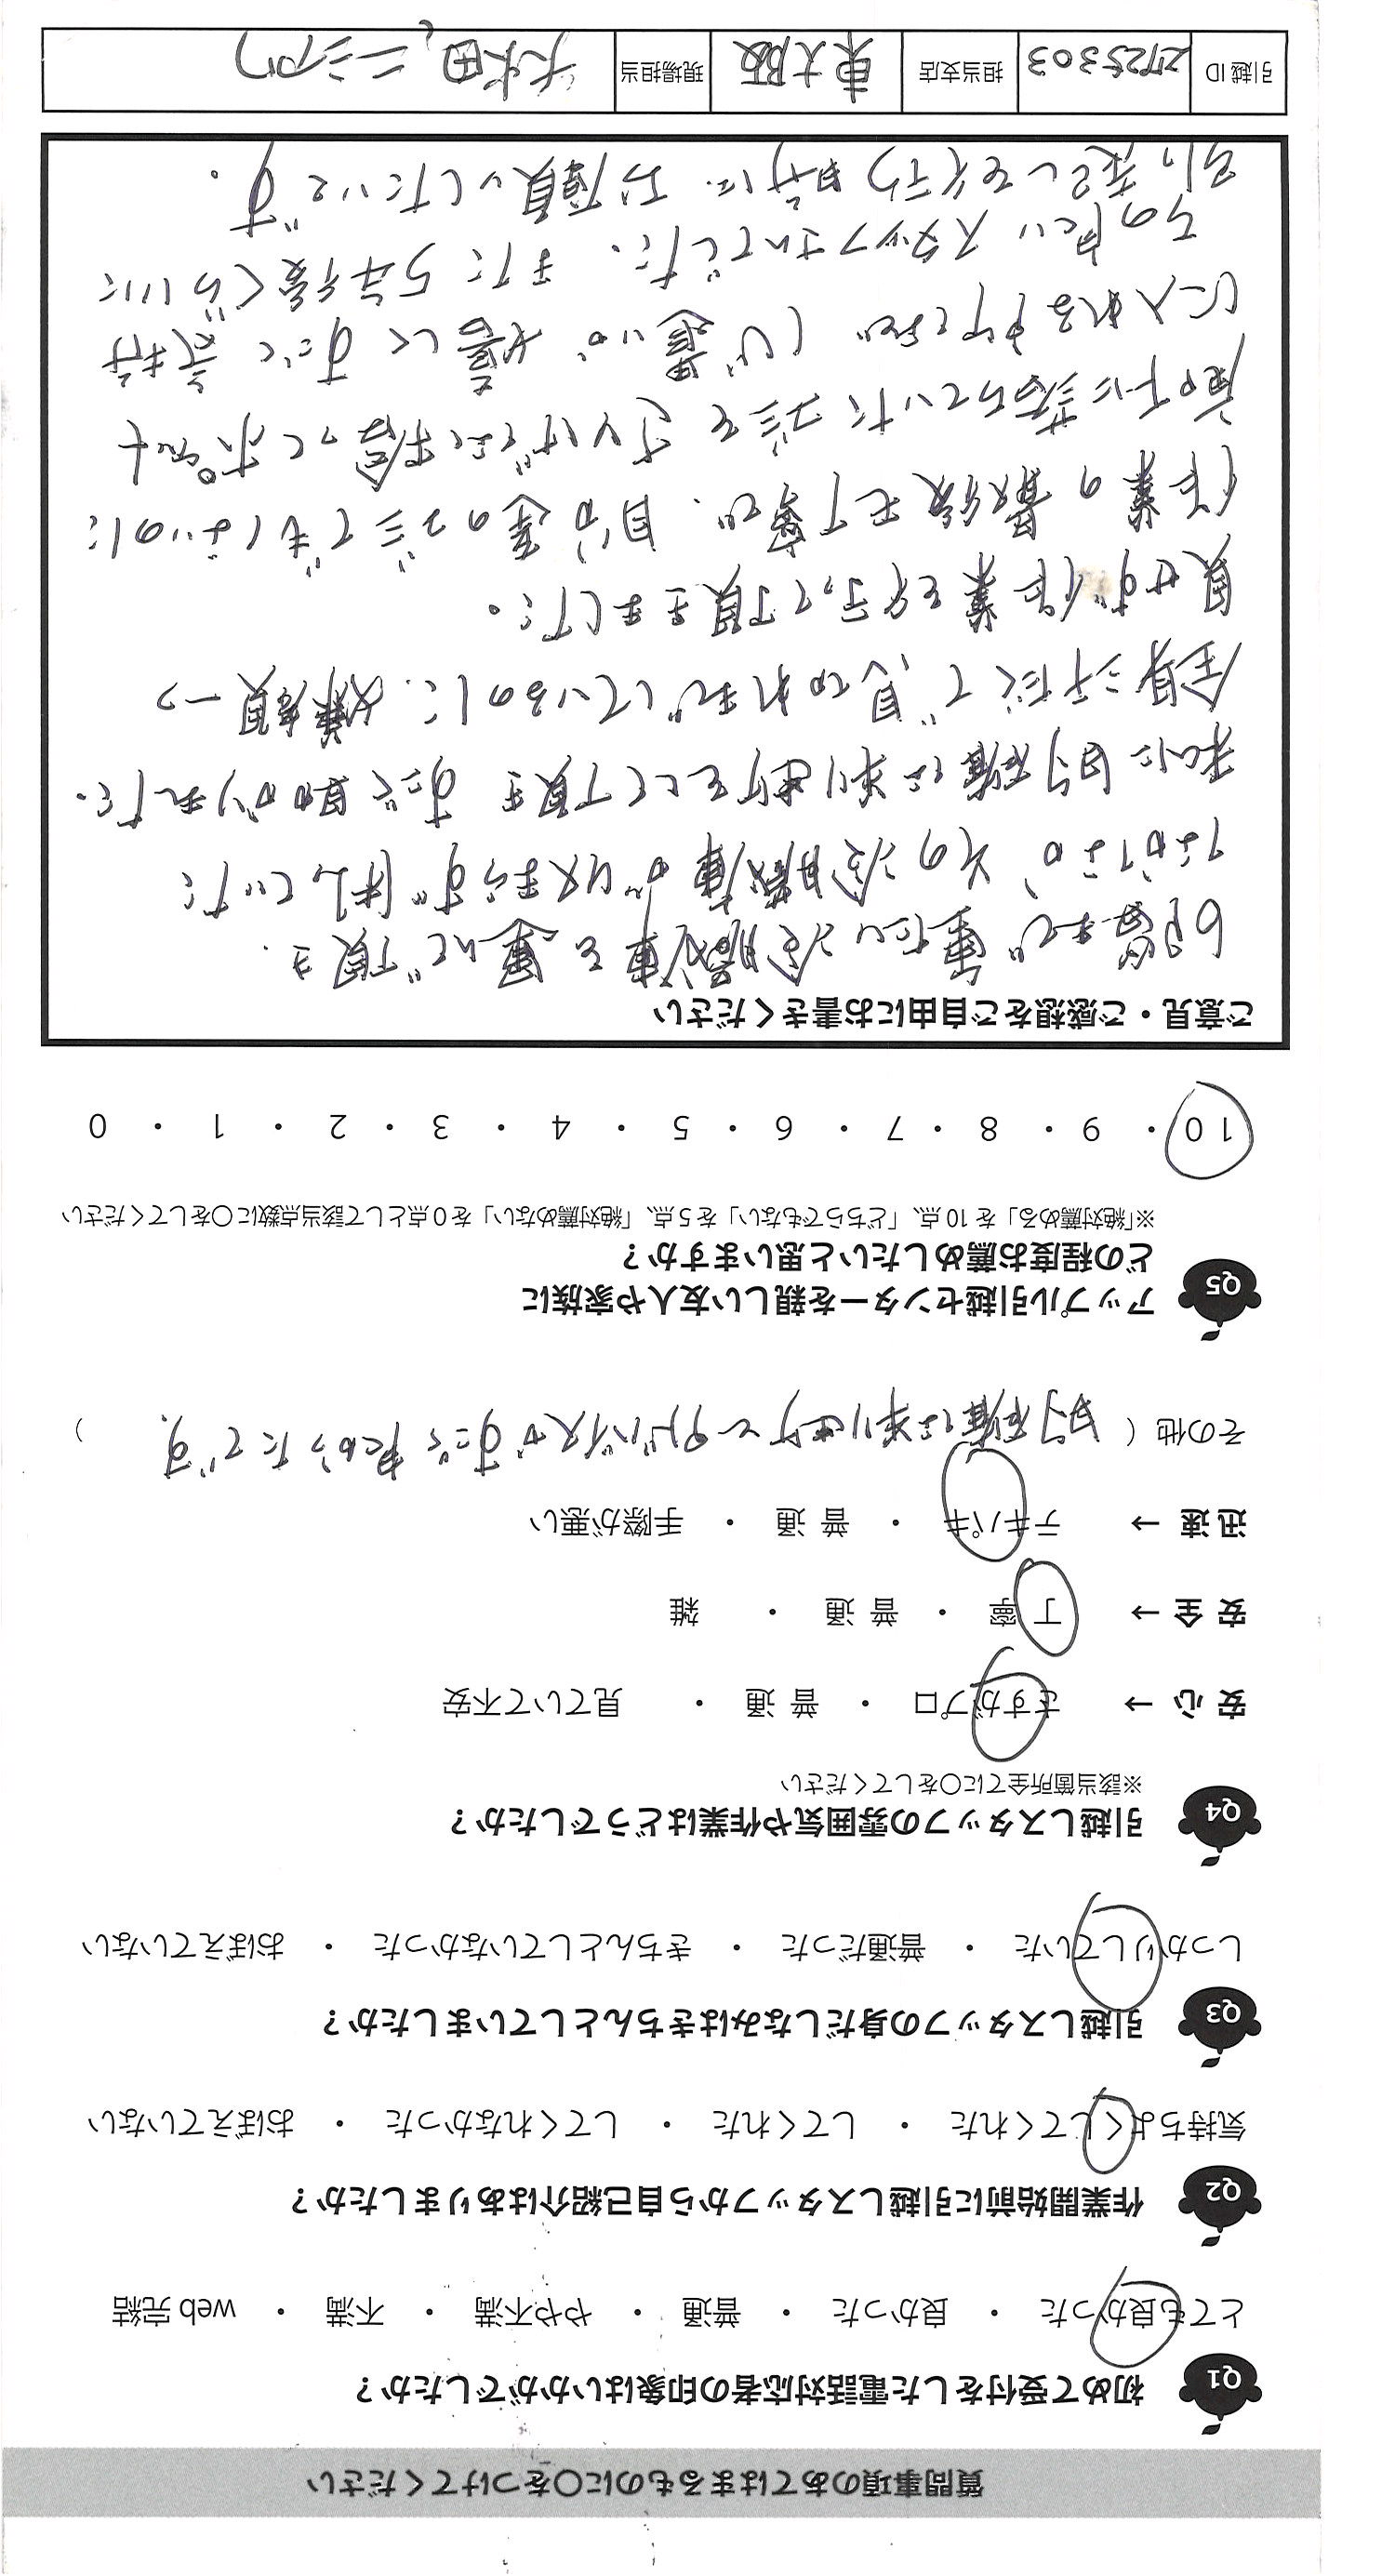 質問事項のあてはまるものに○をつけてください
Q1 初めて受付をした電話対応者の印象はいかがでしたか？
とても良かった ・ 良かった ・ 普通 ・ やや不満 ・ 不満 ・ web完結
Q2 作業開始前に引越しスタッフから自己紹介はありましたか？
気持ちよくしてくれた ・ してくれた ・ してくれなかった ・ おぼえていない
Q3 引越しスタッフの身だしなみはきちんとしていましたか？
しっかりしていた ・ 普通だった ・ きちんとしていなかった ・ おぼえていない
Q4 引越しスタッフの雰囲気や作業はどうでしたか？
※該当箇所全てに○をしてください
安心 → さすがプロ ・ 普通 ・ 見ていて不安
安全 → 丁寧 ・ 普通 ・ 雑
迅速 → テキパキ ・ 普通 ・ 手際が悪い
その他（ 的確な判断とアドバイスがすごく良かったです。 ）
Q5 アップル引越センターを親しい友人や家族に
どの程度お薦めしたいと思いますか？
※「絶対薦める」を10点、「どちらでもない」を5点、「絶対薦めない」を0点として該当点数に○をしてください
10 ・ 9 ・ 8 ・ 7 ・ 6 ・ 5 ・ 4 ・ 3 ・ 2 ・ 1 ・ 0
ご意見・ご感想をご自由にお書きください
6階まで重たい冷蔵庫を運んで頂き、
なおかつ、その冷蔵庫が収まらず悩んでいた
私に的確な判断をして頂き すごく助かりました。
全身汗だくで見切れまでしているのに、嫌な顔一つ
見せず作業を行って頂きました。
作業の最後まで丁寧で、自分達のゴミでもないのに
廊下に落ちていたゴミをさりげなく拾ってポケット
に入れるところまで（び 思いが 嬉しく すごく気持
ちの良いスタッフさんでした。また5年後くらいに
引越しを行う時に、お願いしたいです。
引越ID 2725303 担当支店 東大阪 現場担当 大水田、ニシアワ